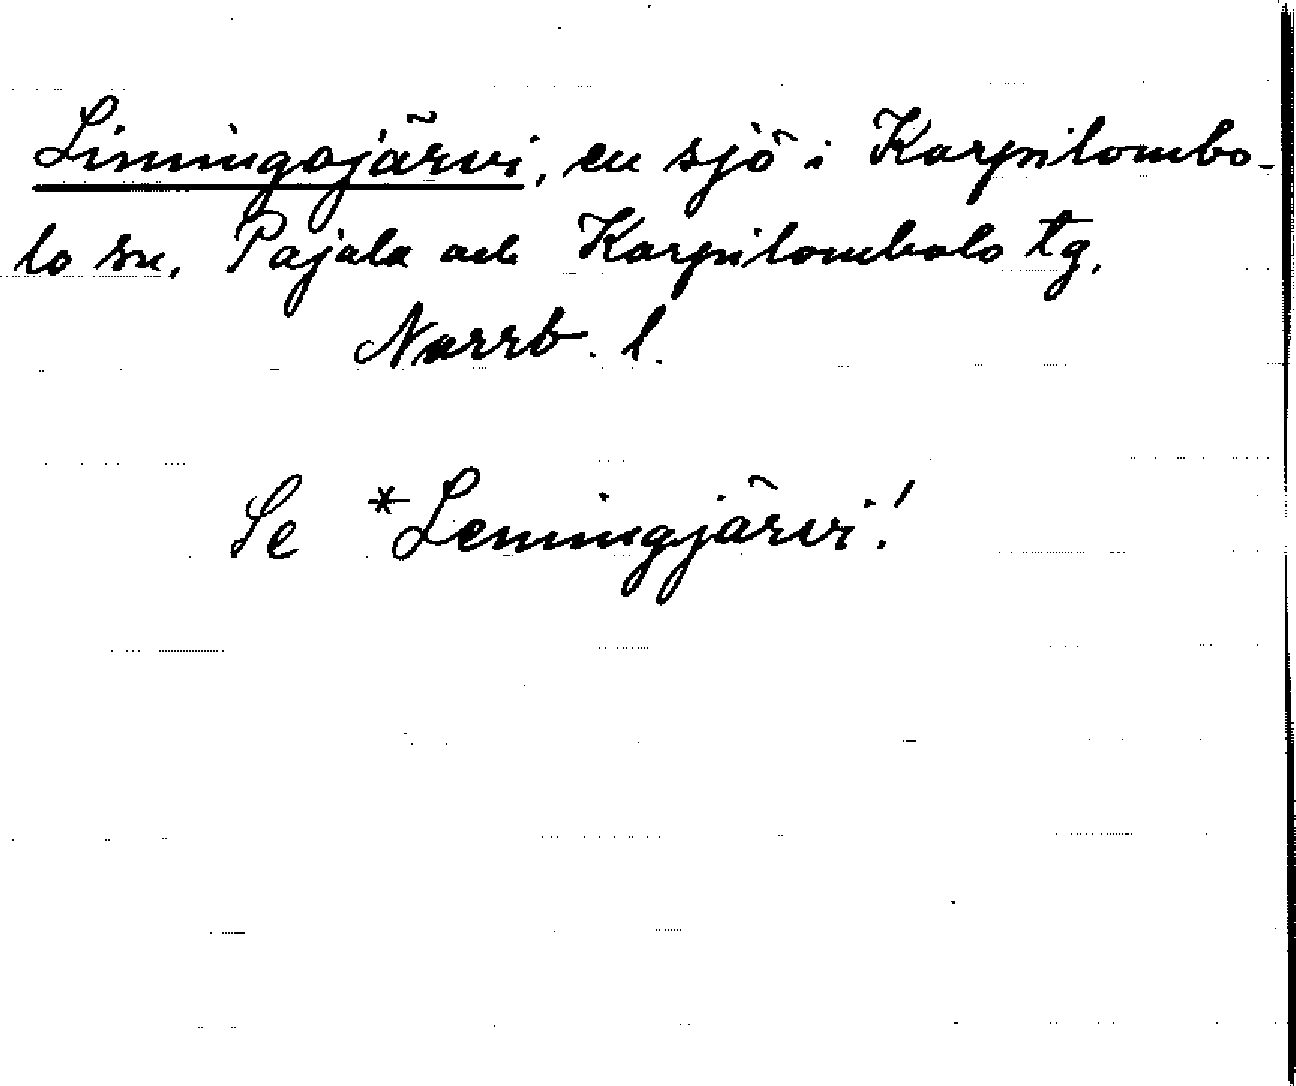 Linningojärvi, en sjö i Karpilombo-
lo sn, Pajala och Karpilombolo tg,
Norrb. l.
Se *Lenningjärvi!